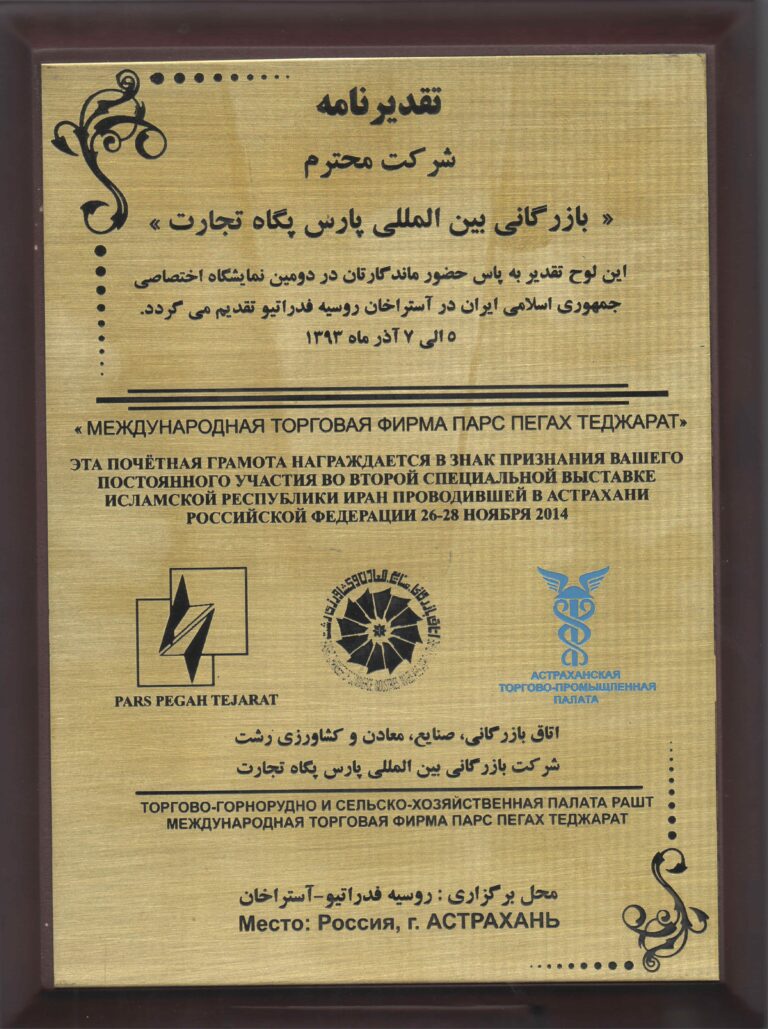 تقدیرنامه
شرکت محترم
« بازرگانی بین المللی پارس پگاه تجارت »
این لوح تقدیر به پاس حضور ماندگارتان در دومین نمایشگاه اختصاصی
جمهوری اسلامی ایران در آستراخان روسیه فدراتیو تقدیم می گردد.
۵ الی ۷ آذر ماه ۱۳۹۳
« МЕЖДУНАРОДНАЯ ТОРГОВАЯ ФИРМА ПАРС ПЕГАХ ТЕДЖАРАТ»
ЭТА ПОЧЁТНАЯ ГРАМОТА НАГРАЖДАЕТСЯ В ЗНАК ПРИЗНАНИЯ ВАШЕГО
ПОСТОЯННОГО УЧАСТИЯ ВО ВТОРОЙ СПЕЦИАЛЬНОЙ ВЫСТАВКЕ
ИСЛАМСКОЙ РЕСПУБЛИКИ ИРАН ПРОВОДИВШЕЙ В АСТРАХАНИ
РОССИЙСКОЙ ФЕДЕРАЦИИ 26-28 НОЯБРЯ 2014
PARS PEGAH TEJARAT
АСТРАХАНСКАЯ
ТОРГОВО-ПРОМЫЩЛЕННАЯ
ПАЛАТА
اتاق بازرگانی، صنایع، معادن و کشاورزی رشت
شرکت بازرگانی بین المللی پارس پگاه تجارت
ТОРГОВО-ГОРНОРУДНО И СЕЛЬСКО-ХОЗЯЙСТВЕННАЯ ПАЛАТА РАШТ
МЕЖДУНАРОДНАЯ ТОРГОВАЯ ФИРМА ПАРС ПЕГАХ ТЕДЖАРАТ
محل برگزاری : روسیه فدراتیو-آستراخان
Место: Россия, г. АСТРАХАНЬ